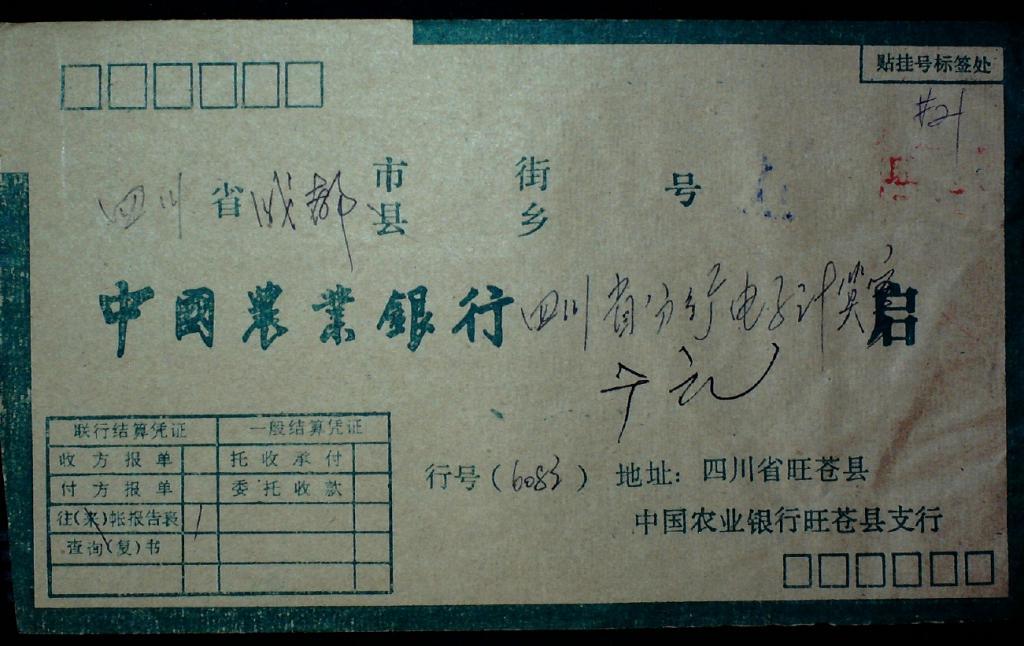 贴挂号标签处
#21
四川省成都市县 街乡 号
中國農業銀行四川省分行电子计算室启
联行结算凭证 一般结算凭证
收方报单 托收承付
付方报单 委托收款
往(来)帐报告表
查询(复)书
行号( ) 地址: 四川省旺苍县
中国农业银行旺苍县支行